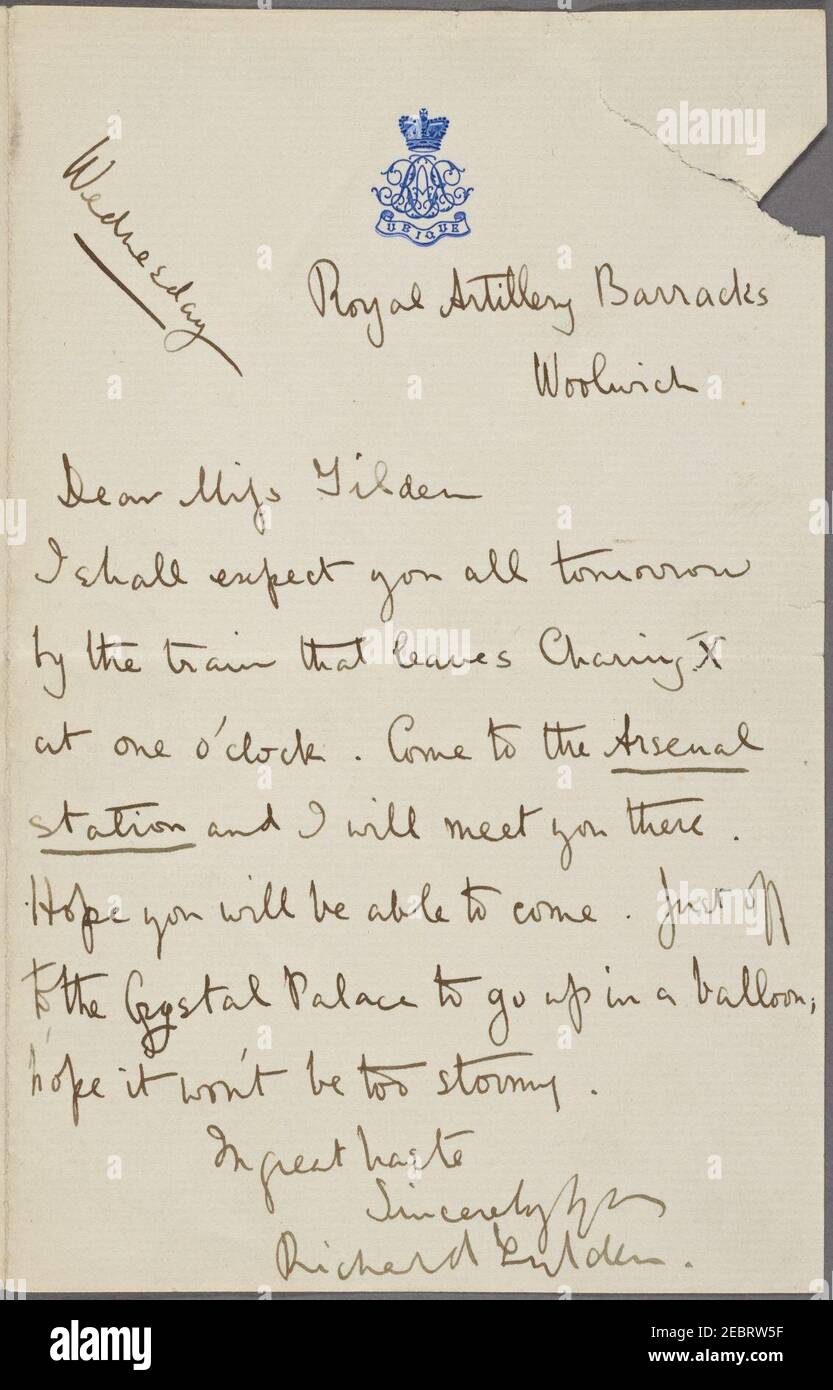 Wednesday
UBIQUE
Royal Artillery Barracks
Woolwich
Dear Miss Tilden
I shall expect you all tomorrow
by the train that leaves Charing X
at one o'clock. Come to the Arsenal
station and I will meet you there.
Hope you will be able to come. Just off
to the Crystal Palace to go up in a balloon;
hope it won't be too stormy.
In great haste
Sincerely yrs
Richard
alamy
alamy
alamy
Image ID: 2EBRW5F
www.alamy.com